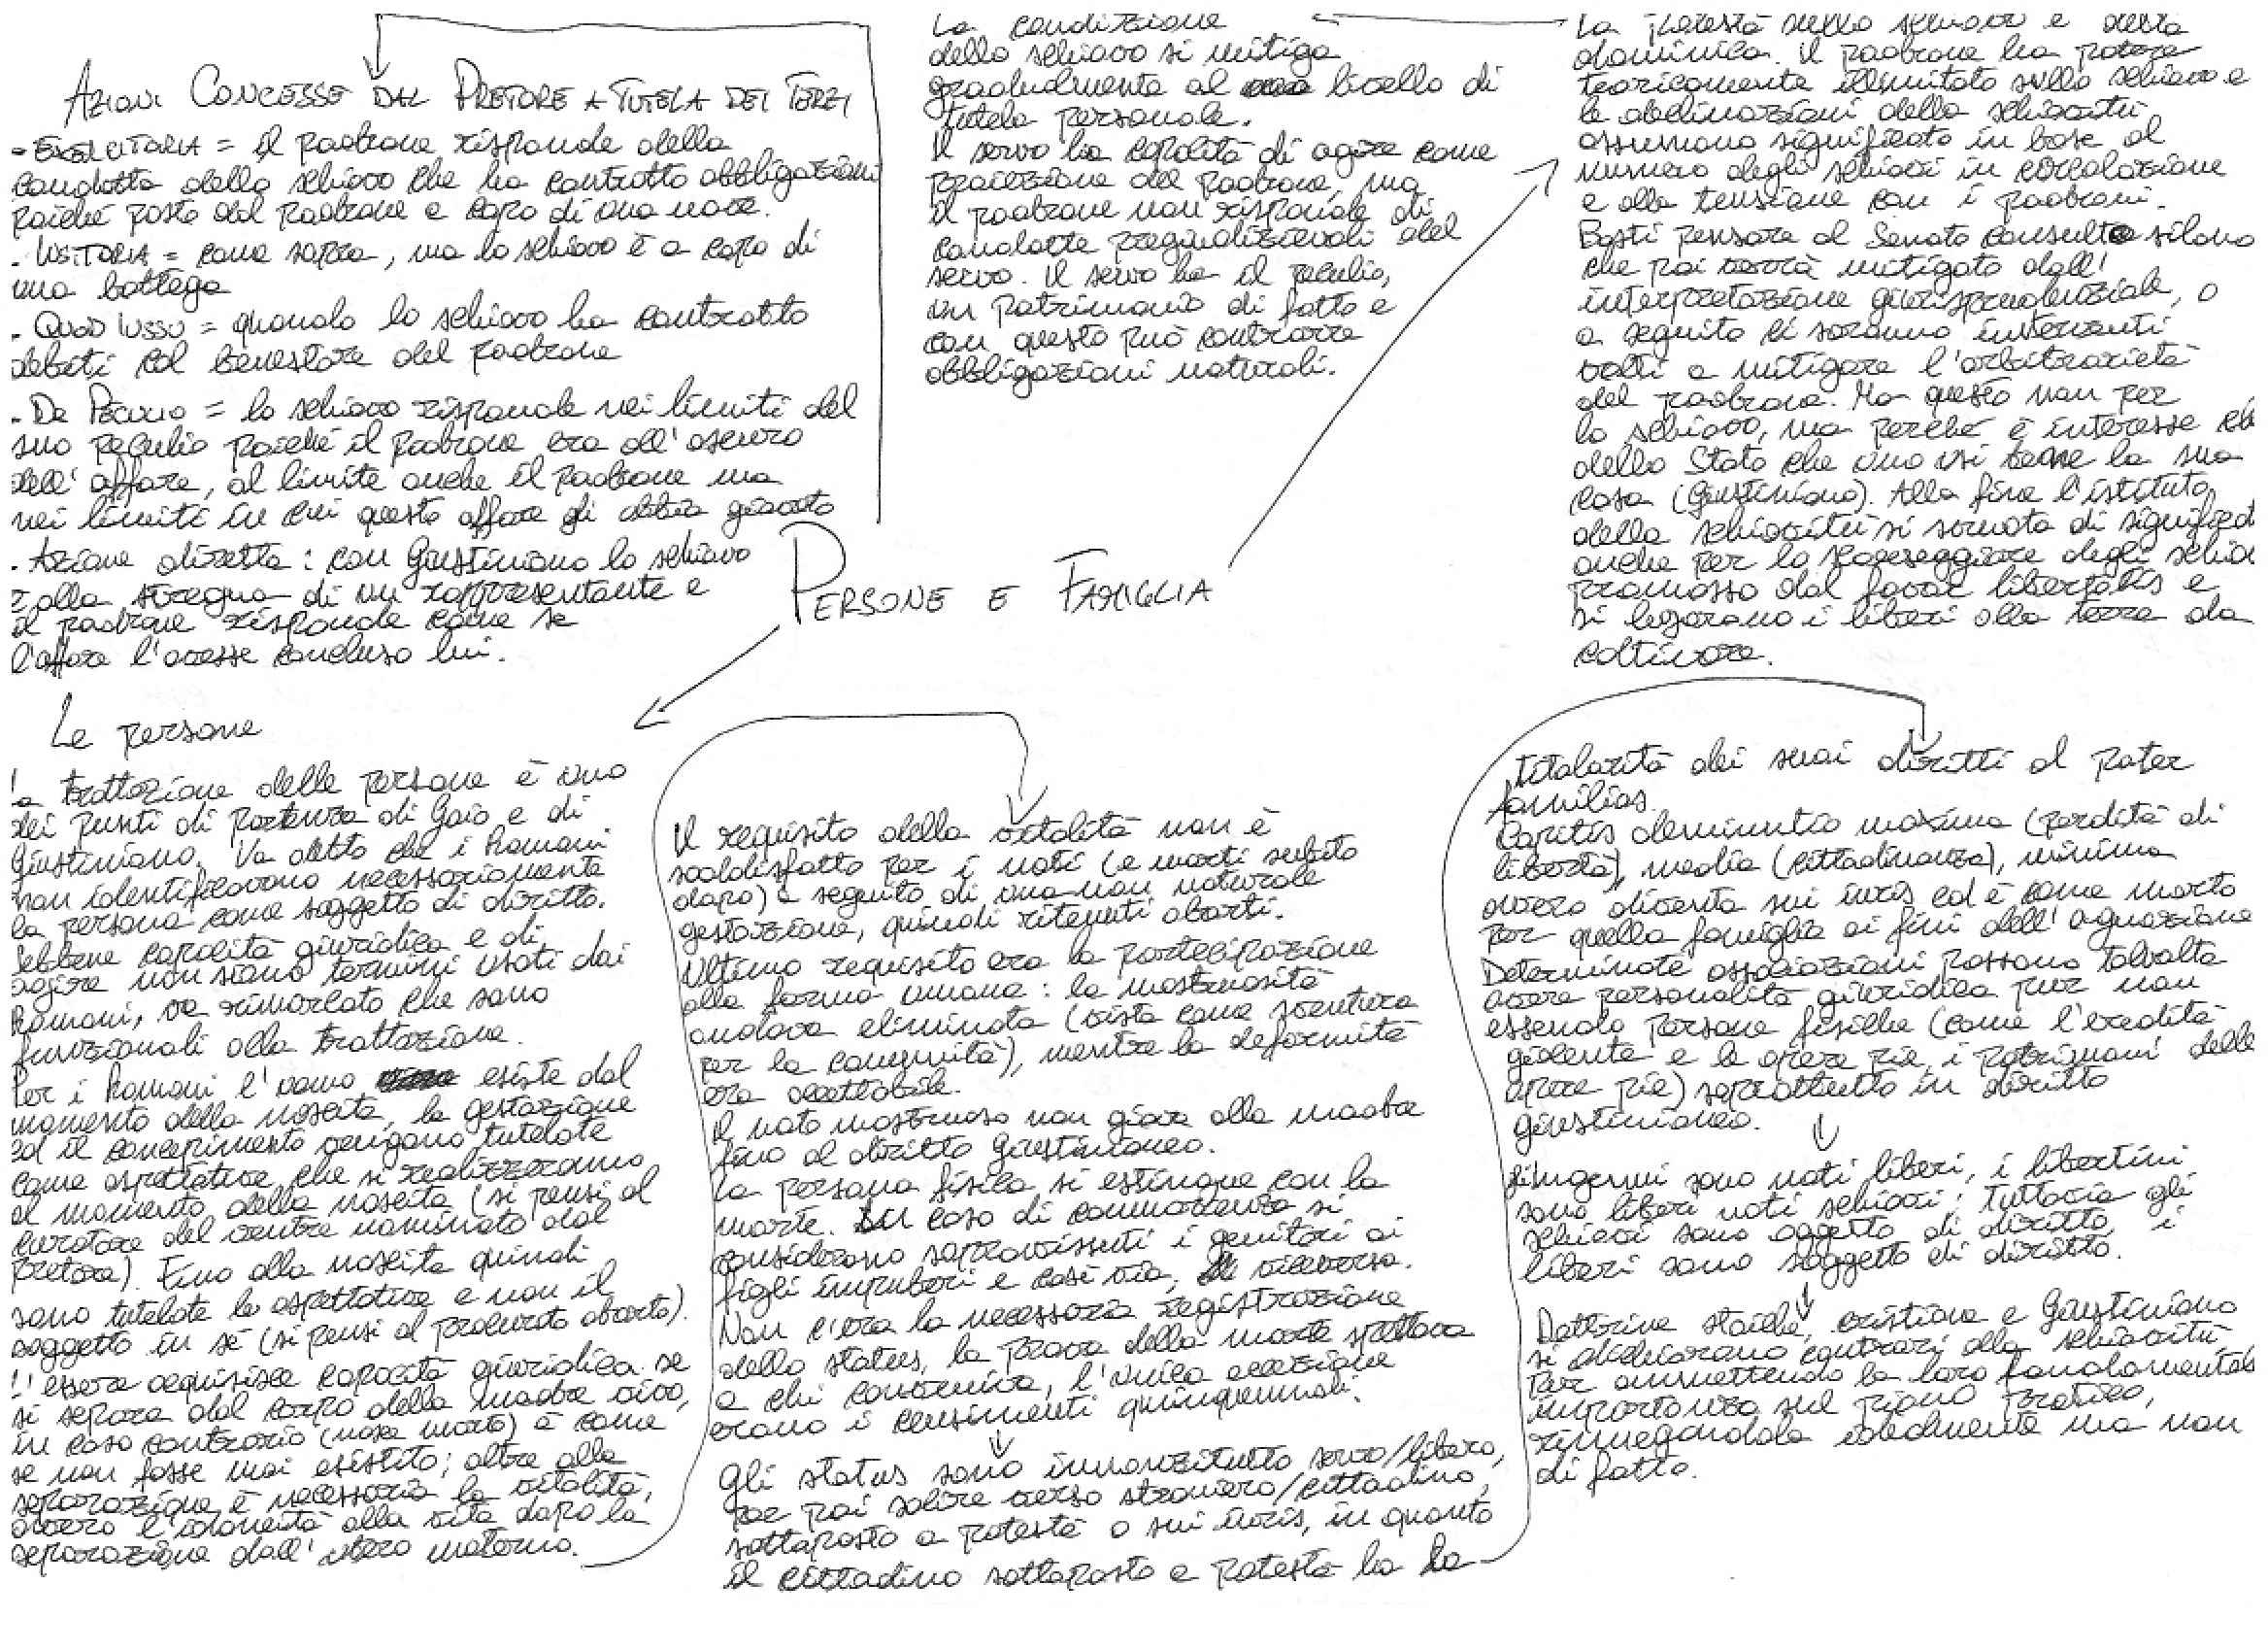 PERSONE E FAMIGLIA
Le persone
La trattazione delle persone è uno
dei punti di partenza di Gaio e di
Giustiniano. Va detto che i Romani
non identificavano necessariamente
la persona come soggetto di diritto.
Sebbene capacità giuridica e di
agire non siano termini usati dai
Romani, va rimarcato che sono
funzionali alla trattazione.
Per i Romani l'uomo esiste dal
momento della nascita, la gestazione
ed il concepimento vengono tutelate
come aspettative che si realizzeranno
al momento della nascita (si pensi al
curatore del ventre nominato dal
pretore). Fino alla nascita quindi
sono tutelate le aspettative e non il
soggetto in sé (si pensi al procurato aborto).
L'essere acquisisce capacità giuridica se
si separa dal corpo della madre vivo,
in caso contrario (nasce morto) è come
se non fosse mai esistito; oltre alla
separazione è necessaria la vitalità,
ovvero l'idoneità alla vita dopo la
separazione dall'utero materno.
Il requisito della vitalità non è
soddisfatto per i nati (e morti subito
dopo) a seguito di una non naturale
gestazione, quindi ritenuti aborti.
Ultimo requisito era la partecipazione
alla forma umana: la mostruosità
andava eliminata (vista come sventura
per la comunità), mentre la deformità
era accettabile.
Il nato mostruoso non giova alla madre
fino al diritto giustinianeo.
La persona fisica si estingue con la
morte. In caso di commorienza si
considerano sopravvissuti i genitori ai
figli impuberi e così via, viceversa.
Non c'era la necessaria registrazione
dello status, la prova della morte spettava
a chi conveniva, l'unica eccezione
erano i censimenti quinquennali.
Gli status sono innanzitutto servo/libero,
per poi salire verso straniero/cittadino,
sottoposto a potestà o sui iuris, in quanto
il cittadino sottoposto a potestà ha la
titolarità dei suoi diritti al pater
familias.
Capitis deminutio maxima (perdita di
libertà), media (cittadinanza), minima
ovvero diventa sui iuris ed è come morto
per quella famiglia ai fini dell'agnazione
Determinate associazioni possono talvolta
avere personalità giuridica pur non
essendo persone fisiche (come l'eredità
giacente e le opere pie, i patrimoni delle
opere pie) soprattutto in diritto
giustinianeo.
Gli ingenui sono nati liberi, i libertini
sono liberi nati schiavi; tuttavia gli
schiavi sono oggetto di diritto, i
liberi sono soggetto di diritto.
Dottrine stoiche, cristiane e Giustiniano
si dichiarano contrari alla schiavitù
pur ammettendo la loro fondamentale
importanza sul piano pratico,
rinnegandola idealmente ma non
di fatto.
La potestà sullo schiavo è detta
dominica. Il padrone ha potere
teoricamente illimitato sullo schiavo e
le declinazioni della schiavitù
assumono significato in base al
numero degli schiavi in circolazione
e alla tensione con i padroni.
Basti pensare al Senato consulto silano
che poi verrà mitigato dall'
interpretazione giurisprudenziale, o
a seguito ci saranno interventi
volti a mitigare l'arbitrarietà
del padrone. Ma questo non per
lo schiavo, ma perché è interesse
dello Stato che uno usi bene la sua
cosa (Giustiniano). Alla fine l'istituto
della schiavitù si svuota di significat
anche per lo scarseggiare degli schia
promosso dal favor libertatis e
si legarono i liberi alla terra da
coltivare.
La condizione
dello schiavo si mitiga
gradualmente al livello di
tutela personale.
Il servo ha capacità di agire come
proiezione del padrone, ma
il padrone non risponde di
condotte pregiudizievoli del
servo. Il servo ha il peculio,
un patrimonio di fatto e
con questo può contrarre
obbligazioni naturali.
AZIONI CONCESSE DAL PRETORE A TUTELA DEI TERZI
- EXERCITORIA = il padrone risponde della
condotta dello schiavo che ha contratto obbligazioni
poiché posto dal padrone a capo di una nave.
- INSITORIA = come sopra, ma lo schiavo è a capo di
una bottega
- QUOD IUSSU = quando lo schiavo ha contratto
debiti col benestare del padrone
- DE PECULIO = lo schiavo risponde nei limiti del
suo peculio poiché il padrone era all'oscuro
dell'affare, al limite anche il padrone ma
nei limiti in cui questo affare gli abbia giovato
- Azione diretta: con Giustiniano lo schiavo
è alla stregua di un rappresentante e
il padrone risponde come se
l'affare l'avesse concluso lui.